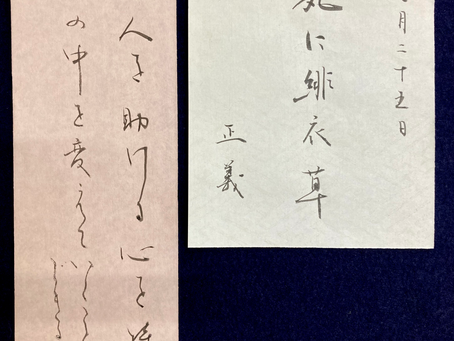 月二十五日
に緋衣草
正義
人を助ける心を
の中を変えて